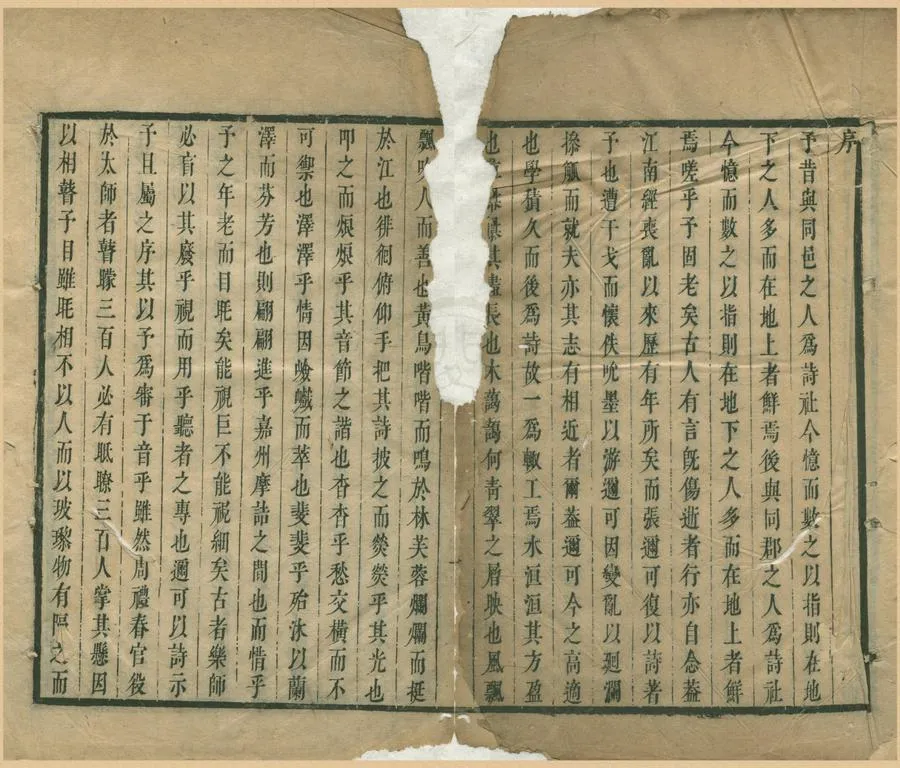 序
予昔與同邑之人爲詩社今憶而數之以指則在地
下之人多而在地上者鮮焉後與同郡之人爲詩社
今憶而數之以指則在地下之人多而在地上者鮮
焉嗟乎予固老矣古人有言既傷逝者行亦自念葢
江南經喪亂以來歷有年所矣而張邇可復以詩著
予也遭干戈而懷佚吮墨以游邇可因變亂以迴瀾
操觚而就夫亦其志有相近者爾葢邇可今之高適
也學積久而後爲詩故一爲輙工焉水洹洹其方盈
也 其盡長也木藹藹何青翠之層映也風飄
飄吹人而善也黃鳥喈喈而鳴於林芙蓉爛爛而挺
於江也徘徊俯仰手把其詩披之而熒熒乎其光也
叩之而烺烺乎其音節之諧也杳杳乎愁交橫而不
可禦也澤澤乎情因嶮巇而萃也斐斐乎殆沐以蘭
澤而芬芳也則翩翩進乎嘉州摩詰之間也而惜乎
予之年老而目眊矣能視巨不能視細矣古者樂師
必盲以其廢乎視而用乎聽者之專也邇可以詩示
予且屬之序其以予爲審于音乎雖然周禮春官役
於太師者瞽矇三百人必有眡瞭三百人掌其懸因
以相瞽予目雖眊相不以人而以玻瓈物有隔之而